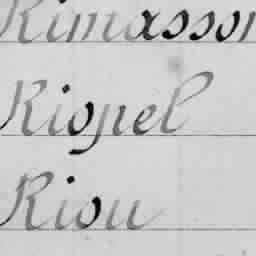 Rimasson
Riopel
Riou